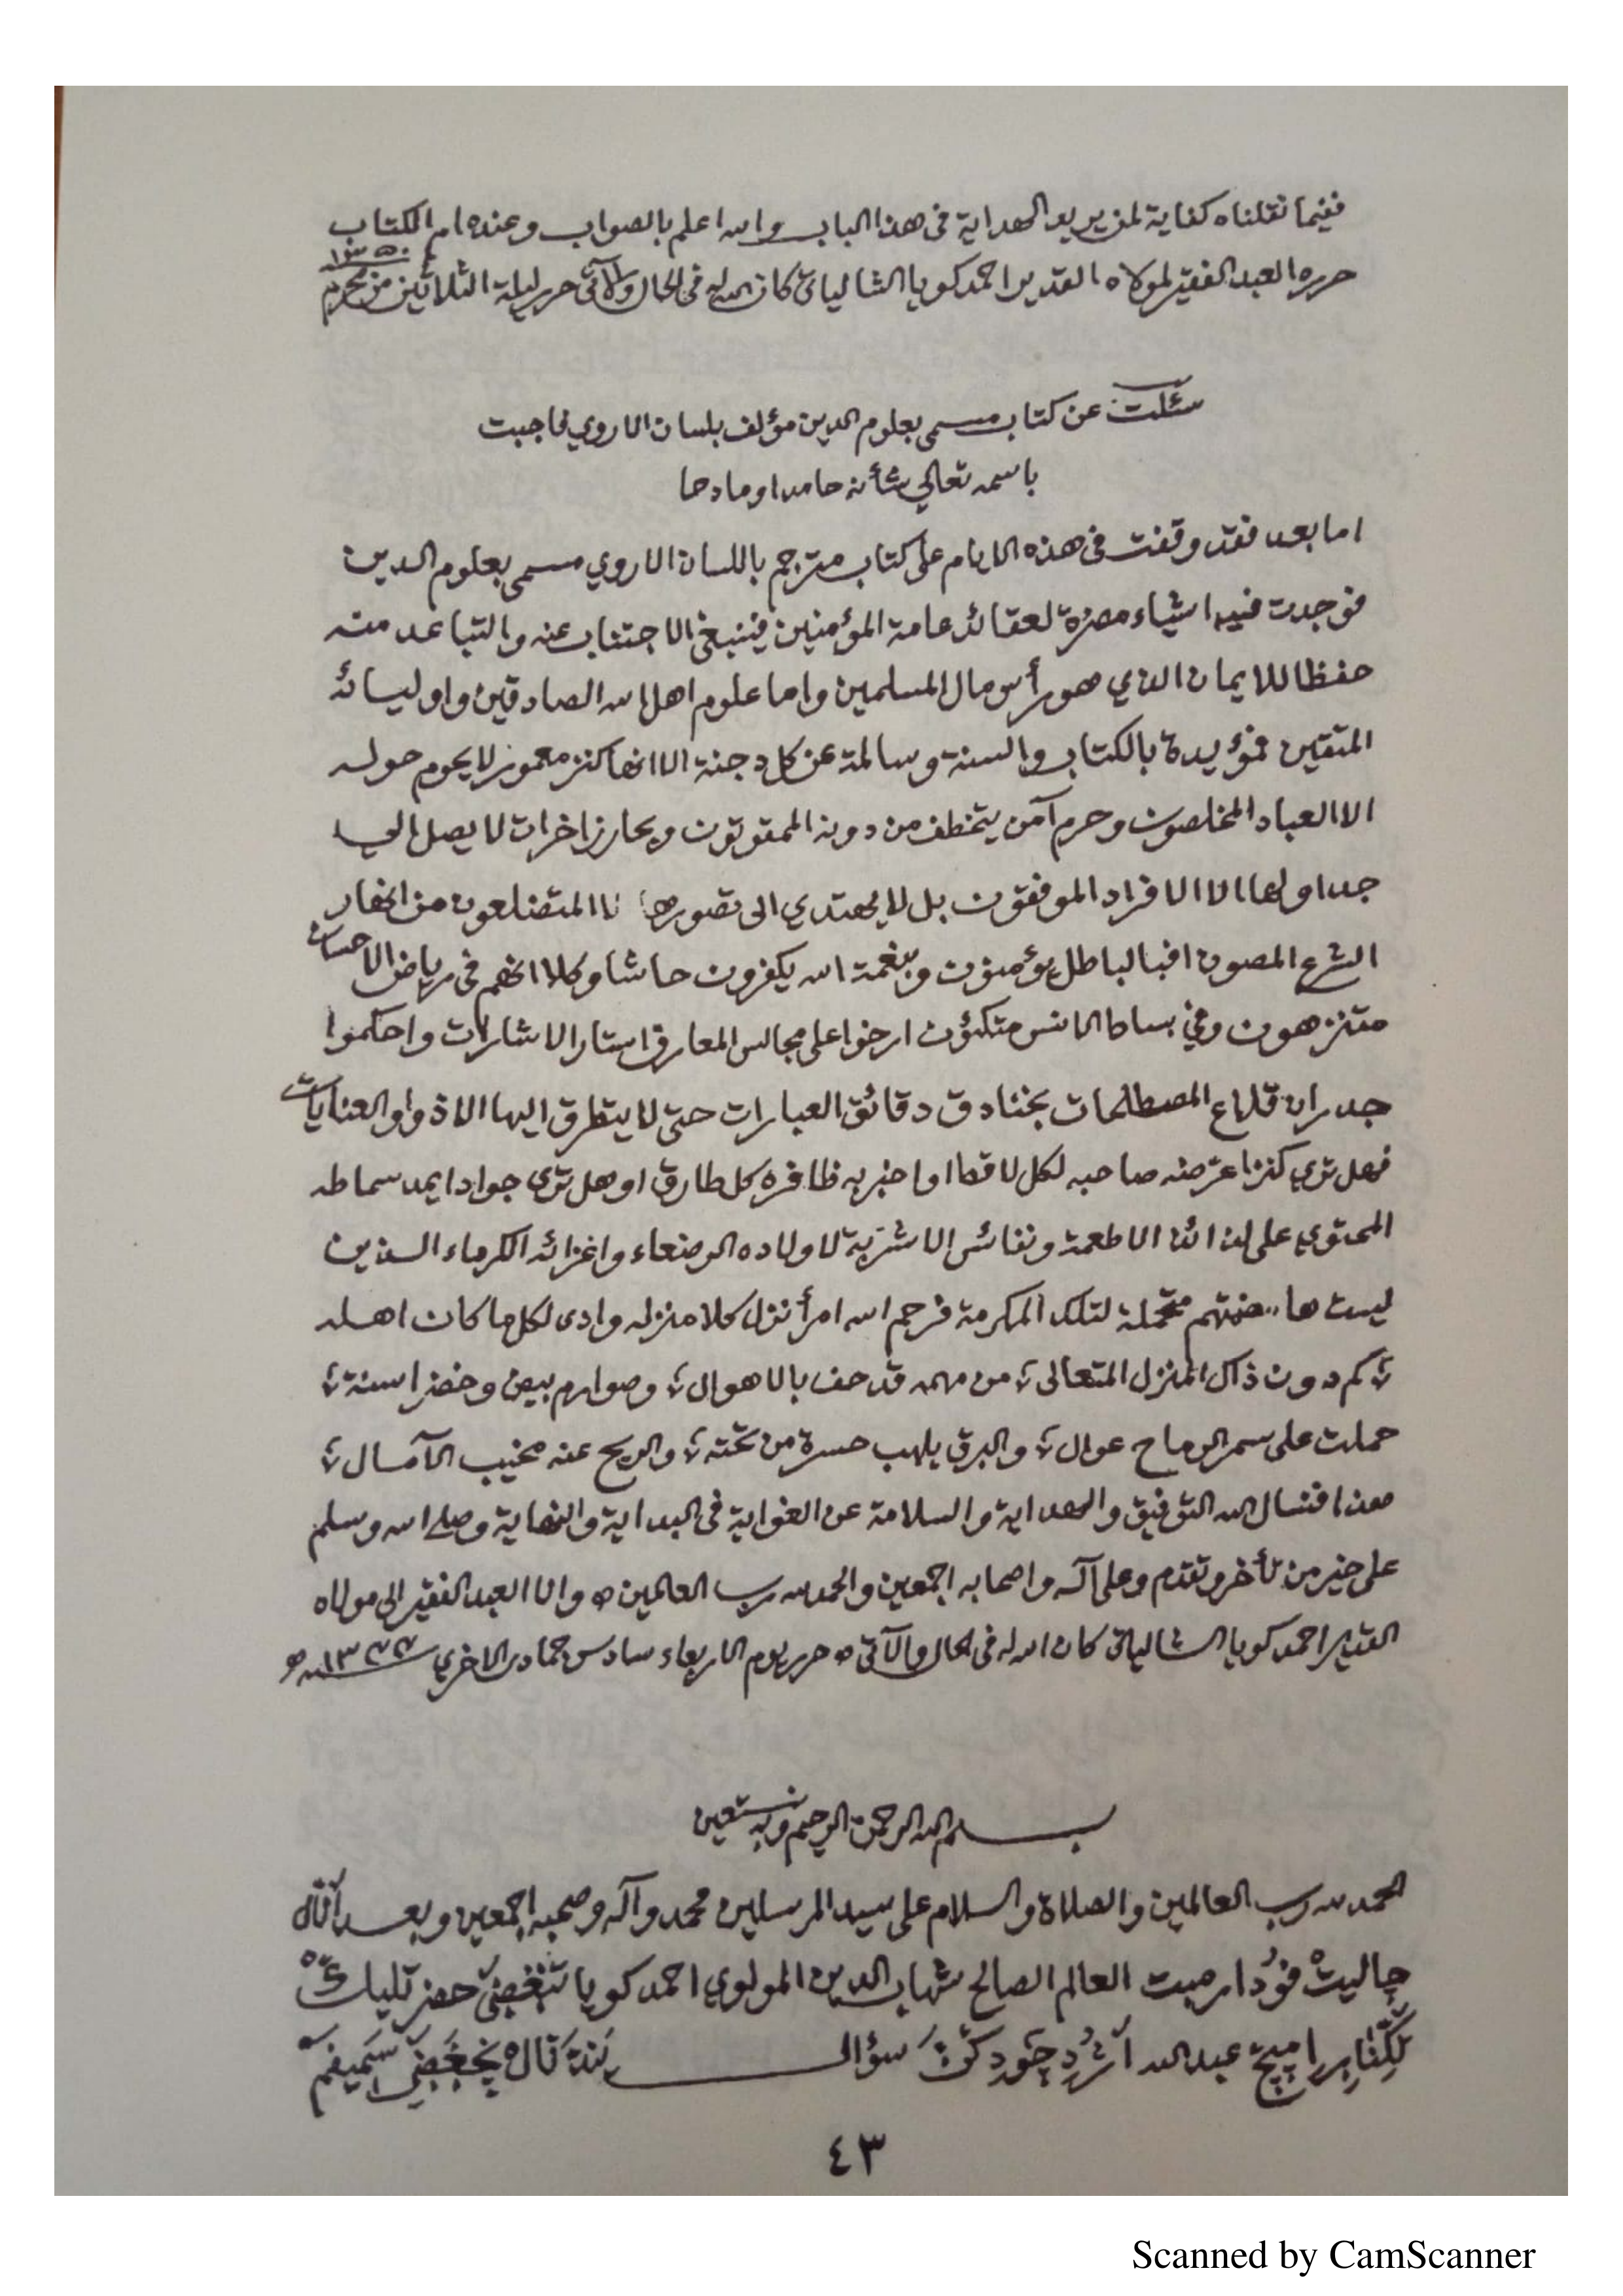 ففيما نقلناه كفاية لمن يريد الهداية فى هذا الباب والله اعلم بالصواب وعنده ام الكتاب
حرره العبد الفقير لمولاه القدير احمد كويا الشالياتى كان الله له فى الحال والآتى حرر ليلة الثلاثين من محرم ١٣٥٠
سئلت عن كتاب مسمى بعلوم الدين مؤلف بلسان الاروي فاجبت
باسمه تعالي شأنه حامدا ومادحا
اما بعد فقد وقفت فى هذه الايام على كتاب مترجم باللسان الاروي مسمى بعلوم الدين
فوجدت فيه اشياء مضرة لعقائد عامة المؤمنين فينبغى الاجتناب عنه والتباعد منه
حفظا للايمان الذي هو رأس مال المسلمين واما علوم اهل الله الصادقين واوليائه
المتقين فمؤيدة بالكتاب والسنة وسالمة عن كل دجنة الا انها كنز معمور لا يحوم حوله
الا العباد المخلصون وحرم آمن يتخطف من دونه الممقوتون وبحار زاخرات لا يصل الى
جداولها الا الافراد الموفقون بل لا يهتدي الى تصورها الا المتضلعون من
الشرع المصون افبالباطل يؤمنون وبنعمة الله يكفرون حاشا وكلا انهم فى رياض الاحسان
متنزهون وفي بساط الانس متكئون ارخوا على مجالس المعارف استار الاشارات واحكموا
جدران قلاع المصطلحات بخنادق دقائق العبارات حتى لا يتطرق اليها الا ذوو العنايات
فهل ترى كنزا عرضه صاحبه لكل لاقط او اخبر به ظافره كل طارق او هل ترى جوادا يمد سماطه
المحتوي على لذائذ الاطعمة ونفائس الاشربة لاولاده الرضعاء واعزائه الكرماء الذين
ليست هاضمتهم متحملة لتلك المكرمة فرحم الله امرأ نزل كلا منزله وادى لكل ما كان اهله
كم دون ذاك المنزل المتعالى ؛ من مهمه قد حف بالاهوال ؛ وصوارم بيض وخضر اسنة ؛
حملت على سمر الرماح عوال ؛ والبرق يلهب حسرة من تحته ؛ والريح عنه مخيب الآمال ؛
هذا فنسأل الله التوفيق والهداية والسلامة عن الغواية فى البداية والنهاية وصلى الله وسلم
على خير من تأخر وتقدم وعلى آله واصحابه اجمعين والحمد لله رب العالمين ٥ وانا العبد الفقير الى مولاه
القدير احمد كويا الشالياتى كان الله له فى الحال والآتى ٥ حرر يوم الاربعاء سادس جمادى الاخرى
بسم الله الرحمن الرحيم وبه نستعين
الحمد لله رب العالمين والصلاة والسلام على سيد المرسلين محمد وآله وصحبه اجمعين وبعد
چاليت العالم الصالح شهاب الدين المولوي احمد كويا
عبد الله سؤال
٤٣
Scanned by CamScanner